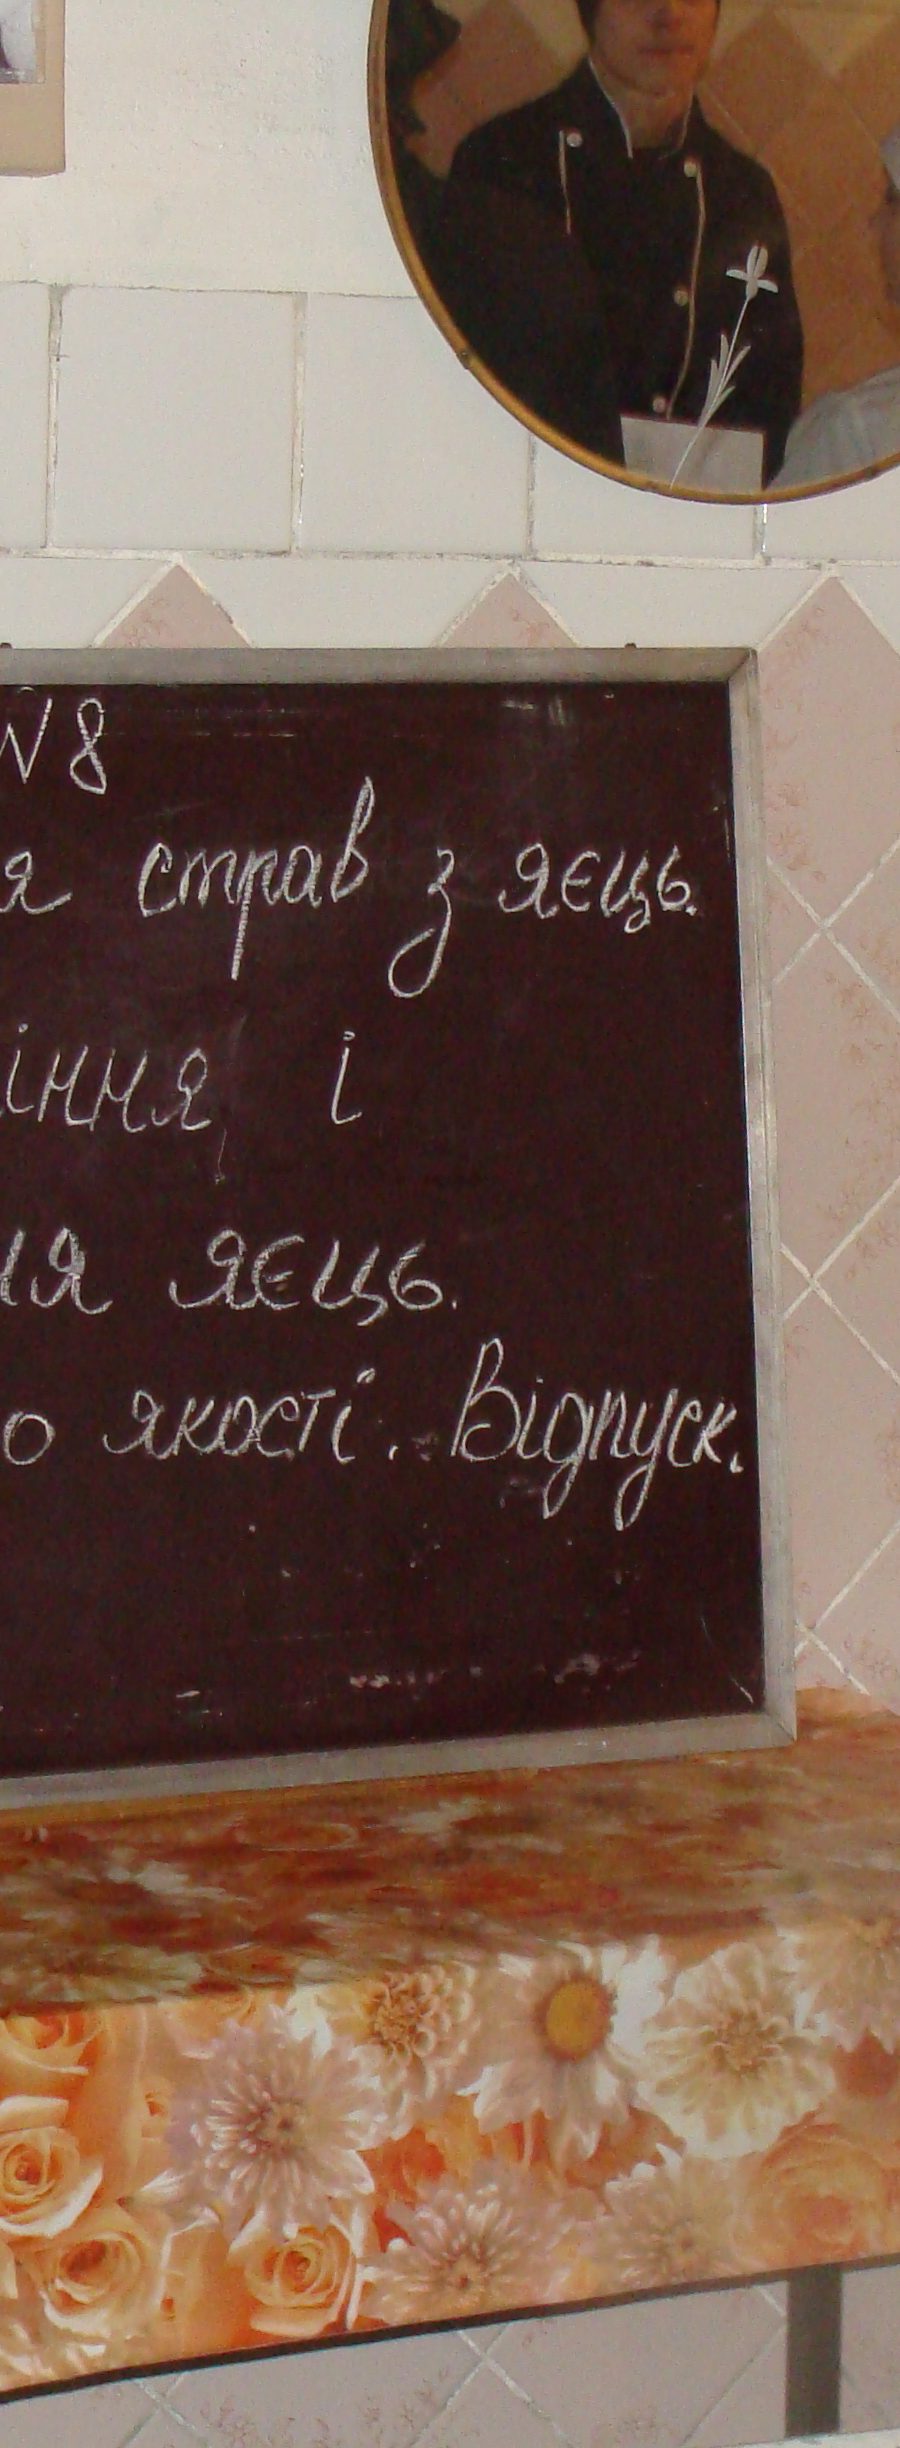 N 8
я страв з яєць.
іння і
ня яєць.
о якості. Відпуск.